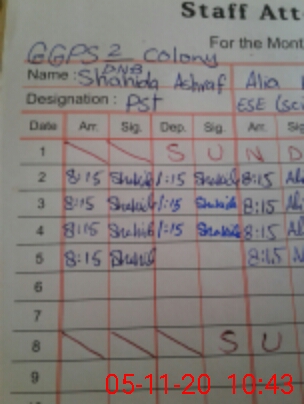 Staff Att
For the Mont
GGPS 2 Colony
DNB
Name : Shahida Ashraf Alia
Designation : PST ESE (sc
Date Arr. Sig. Dep. Sig. Arr. Sig
1 S U N D
2 8:15 Shahid 1:15 Shahid 8:15 Ali
3 8:15 Shahid 1:15 Shahid 8:15 Al
4 8:15 Shahid 1:15 Shahid 8:15 Al
5 8:15 Shahid 8:15
6
7
8 S U
9
05-11-20 10:43